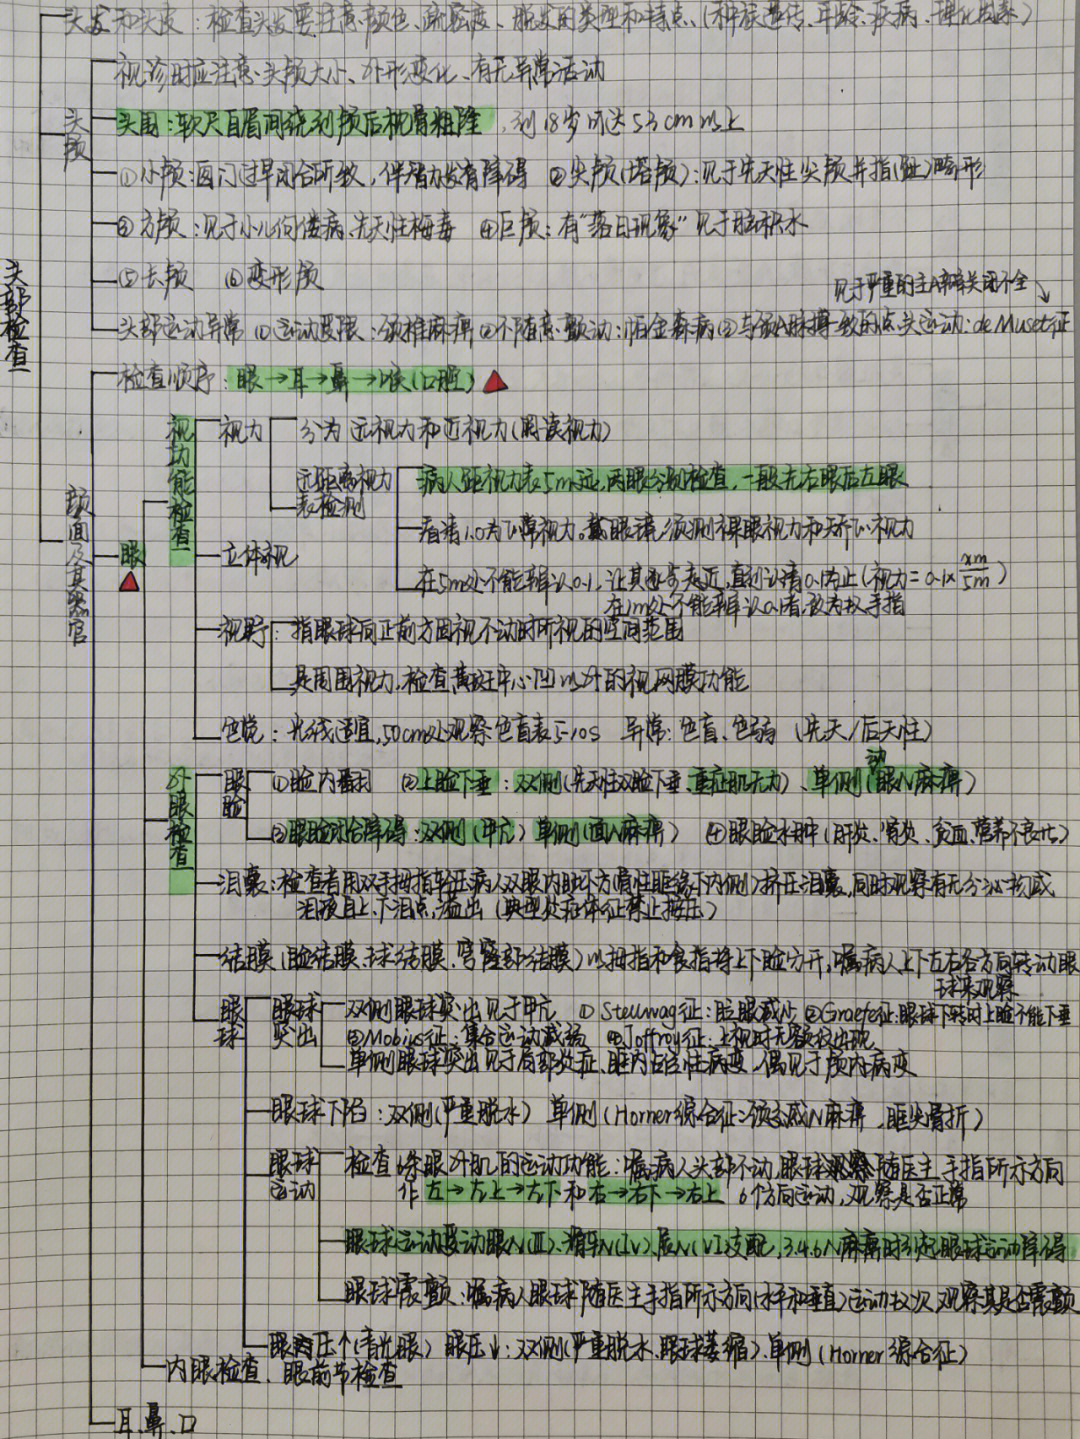 头发和头皮：检查头发要注意颜色、疏密度、脱发的类型和特点（种族遗传、年龄、疾病、理化因素）
视诊时应注意头颅大小、外形变化、有无异常活动
头颅
头围：软尺自眉间绕到颅后枕骨粗隆，到18岁可达53cm以上
①小颅：囟门过早闭合所致，伴智力发育障碍 ②尖颅（塔颅）：见于先天性尖颅并指（趾）畸形
③方颅：见于小儿佝偻病、先天性梅毒 ④巨颅：有“落日现象”见于脑积水
头部检查
⑤长颅 ⑥变形颅
见于严重的主A瓣关闭不全
头部运动异常 ①运动受限：颈椎麻痹 ②不随意颤动：帕金森病 ③与颈A脉搏一致的点头运动：de Muset征
检查顺序：眼→耳→鼻→喉（口腔）
颜面及其器官
眼
视功能检查
视力 分为远视力和近视力（阅读视力）
远距离视力表检测
病人距视力表5m远，两眼分别检查，一般先右眼后左眼
看清1.0为正常视力。戴眼镜须测裸眼视力和矫正视力
立体视
在5m处不能辨认0.1，让其逐步走近，直到认清0.1为止（视力=0.1×xm/5m）
在1m处不能辨认0.1者，改为数手指
视野：指眼球向正前方固视不动时所视的空间范围
是周围视力，检查黄斑中心凹以外的视网膜功能
色觉：光线适宜，50cm处观察色盲表5-10s 异常：色盲、色弱（先天/后天性）
外眼检查
眼睑
①睑内翻 ②上睑下垂：双侧（先天性双睑下垂、重症肌无力）、单侧（动眼N麻痹）
③眼睑闭合障碍：双侧（甲亢）单侧（面N麻痹） ④眼睑水肿（肝炎、肾炎、贫血、营养不良）
泪囊：检查者用双手拇指轻压病人双眼内眦下方（骨性眶缘下内侧）挤压泪囊，同时观察有无分泌物或
泪液自上、下泪点溢出（典型炎症体征禁止按压）
结膜（睑结膜、球结膜、穹窿部结膜）以拇指和食指将上下睑分开，嘱病人上下左右各方向转动眼
球来观察
眼球
眼球突出
双侧眼球突出见于甲亢 ①Stellwag征：瞬眼减少 ②Graefe征：眼球下转时上睑不能下垂
③Mobius征：集合运动减弱 ④Joffroy征：上视时无额纹出现
单侧眼球突出见于局部炎症、眶内占位性病变、偶见于颅内病变
眼球下陷：双侧（严重脱水） 单侧（Horner综合征：颈交感N麻痹、眶尖骨折）
眼球运动
检查6条眼外肌的运动功能：嘱病人头部不动，眼球随医生手指所示方向
作左→左上→左下和右→右下→右上 6个方向运动，观察是否正常
眼球运动受动眼N（Ⅲ）、滑车N（Ⅳ）、展N（Ⅵ）支配，3.4.6N麻痹时引起眼球运动障碍
眼球震颤：嘱病人眼球随医生手指所示方向（水平和垂直）运动数次，观察其是否震颤
眼内压↑（青光眼） 眼压↓：双侧（严重脱水、眼球萎缩）、单侧（Horner综合征）
内眼检查、眼前节检查
耳、鼻、口